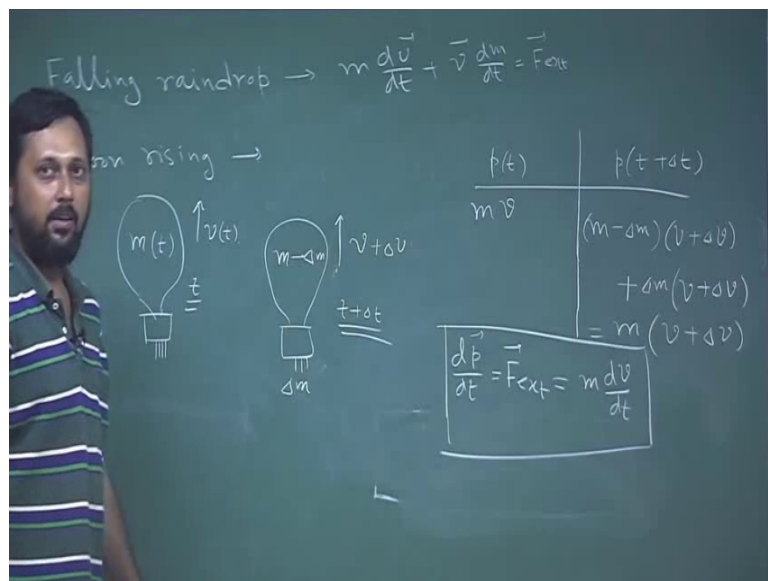 Falling raindrop → m dv⃗/dt + v⃗ dm/dt = F⃗ext
oon rising →
m(t)
↑ v(t)
t
m-Δm
↑ v+Δv
t+Δt
Δm
p(t)
p(t+Δt)
mv
(m-Δm)(v+Δv)
+Δm(v+Δv)
= m(v+Δv)
dp⃗/dt = F⃗ext = m dv⃗/dt